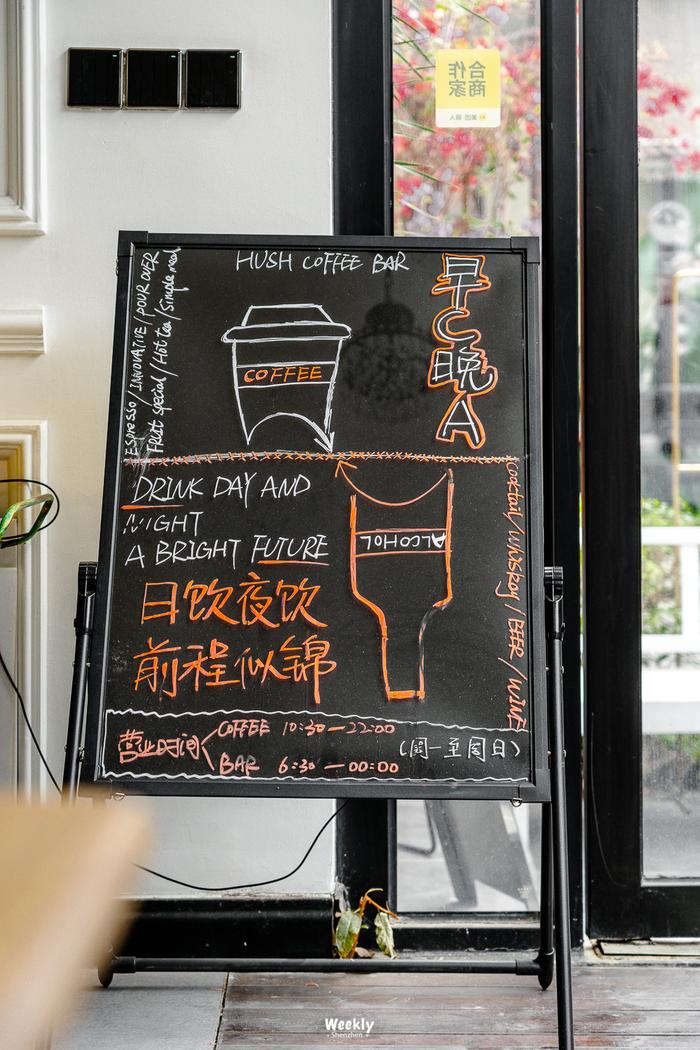 合作
商家
美团·丽人
HUSH COFFEE BAR
Espresso / INNOVATIVE / POUR OVER
Fruit special / Hot tea / Simple meal
早C晚A
COFFEE
DRINK DAY AND
NIGHT
A BRIGHT FUTURE
日饮夜饮
前程似锦
ALCOHOL
Cocktail / Whiskey / BEER / WINE
营业时间
COFFEE 10:30—22:00
BAR 6:30—00:00
(周一至周日)
Weekly
Shenzhen